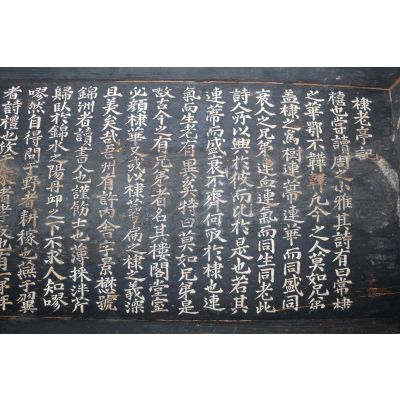 棣老亭記
橲也嘗讀周之小雅其詩有曰常棣
之華鄂不韡韡凡今之人莫如兄弟
盖棣之爲樹連蒂連華而同盛同
衰人之兄弟連血連氣而同生同老此
詩人所以興於彼而比於是也若其
連蒂而盛衰不齊何取於棣也連
氣而生老有異奚特曰莫如兄弟是
故古今之有兄弟者名其樓閣堂室
必類棣華又或以棣萼扁之棣之義深
且美矣哉吾州有許内舍字景懋號
錦洲者讀書人也謹飭士也薄採泮芹
歸臥於錦水之陽丹邱之下不求人知嘐
嘐然自得問于野者耕稼也燕于翼
者詩禮也